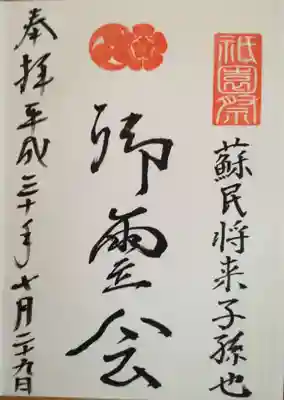 祇園祭
蘇民将来子孫也
御霊会
奉拝平成三十年七月二十九日